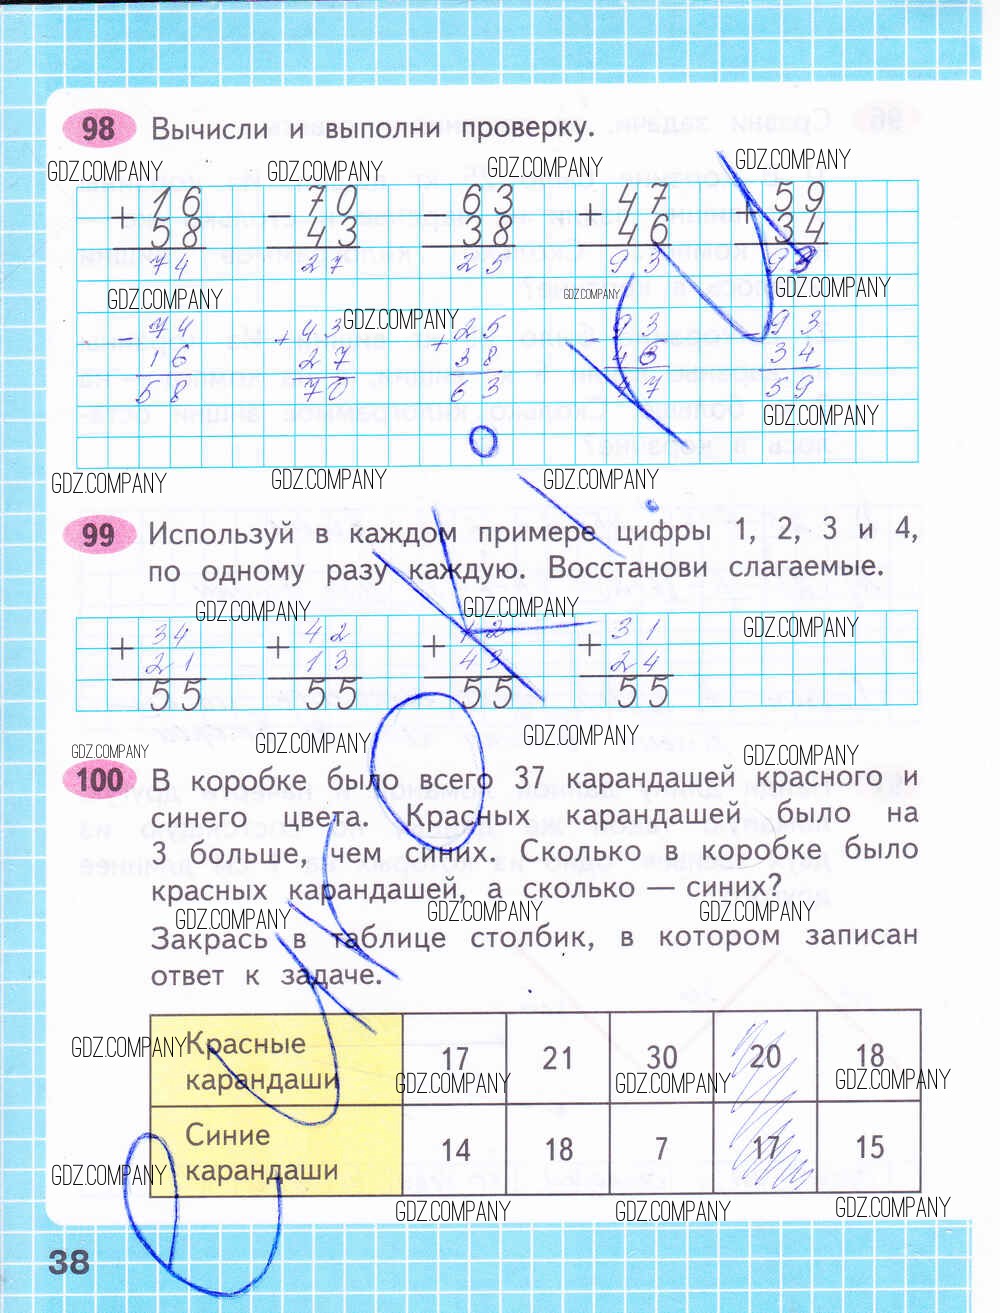 98 Вычисли и выполни проверку.
GDZ.COMPANY GDZ.COMPANY GDZ.COMPANY GDZ.COMPANY
+ 16 − 70 − 63 + 47 + 59
58 43 38 46 34
74 27 25 93 93
GDZ.COMPANY GDZ.COMPANY GDZ.COMPANY
GDZ.COMPANY
− 74 + 43 + 25 − 93 − 93
16 27 38 46 34
58 70 63 47 59
GDZ.COMPANY
GDZ.COMPANY GDZ.COMPANY GDZ.COMPANY
99 Используй в каждом примере цифры 1, 2, 3 и 4,
по одному разу каждую. Восстанови слагаемые.
GDZ.COMPANY GDZ.COMPANY GDZ.COMPANY
+ 34 + 42 + 12 + 31
21 13 43 24
55 55 55 55
GDZ.COMPANY GDZ.COMPANY GDZ.COMPANY GDZ.COMPANY
100 В коробке было всего 37 карандашей красного и
синего цвета. Красных карандашей было на
3 больше, чем синих. Сколько в коробке было
красных карандашей, а сколько — синих?
GDZ.COMPANY GDZ.COMPANY GDZ.COMPANY
Закрась в таблице столбик, в котором записан
ответ к задаче.
Красные карандаши 17 21 30 20 18
GDZ.COMPANY GDZ.COMPANY GDZ.COMPANY GDZ.COMPANY
Синие карандаши 14 18 7 17 15
GDZ.COMPANY GDZ.COMPANY GDZ.COMPANY GDZ.COMPANY
38